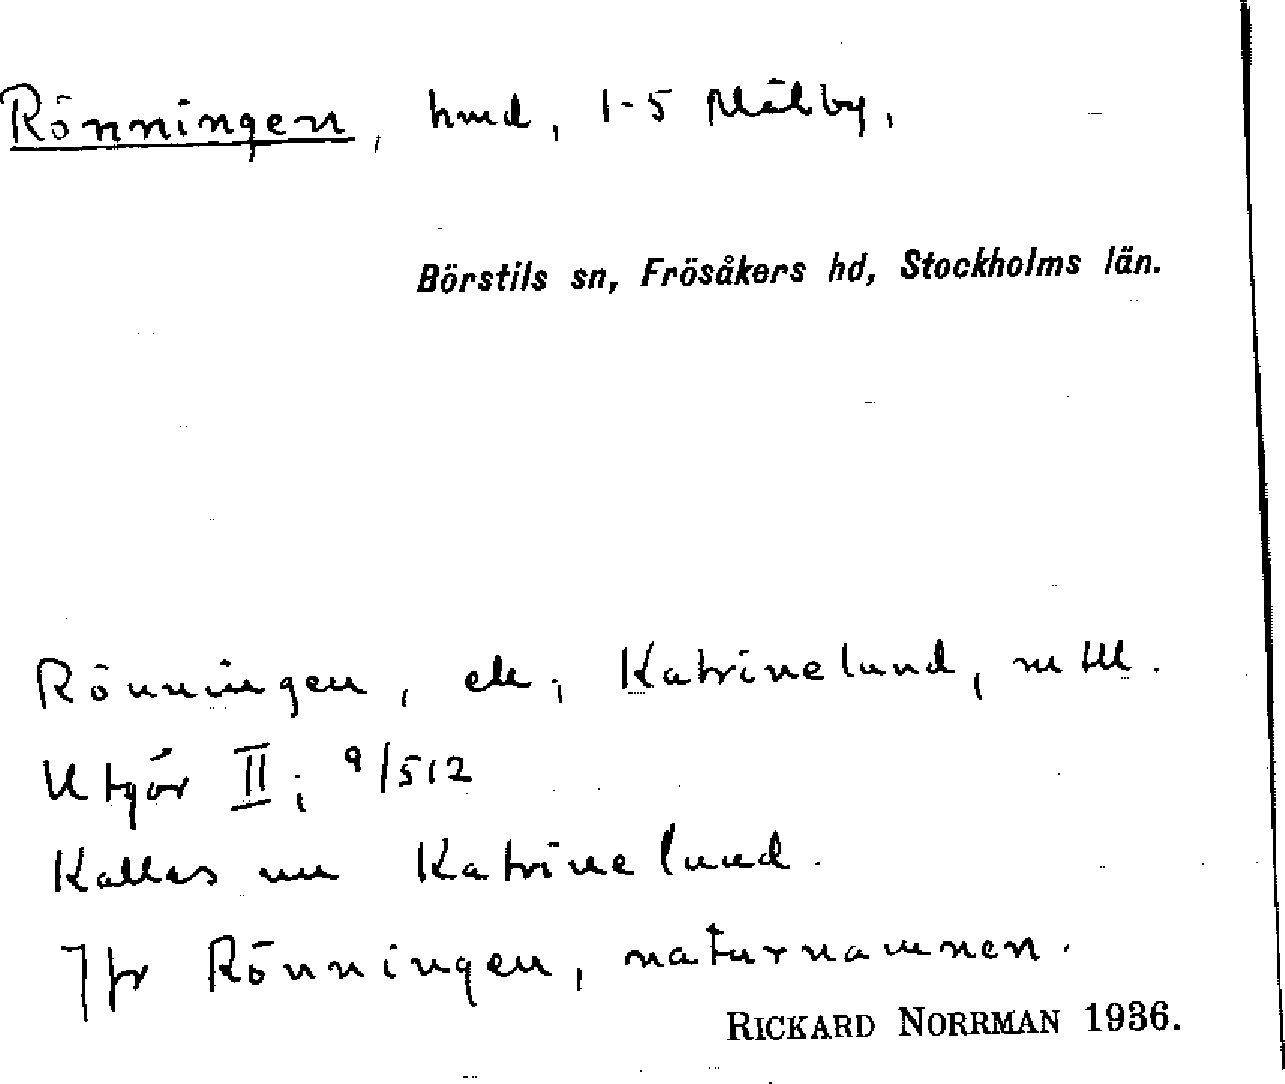 Rönningen, hmd, 1-5 Målby,
Börstils sn, Frösåkers hd, Stockholms län.
Rönningen, el., Katrinelund,
Utgör II; 9/512
Kallas nu Katrinelund.
Jfr Rönningen, naturnamnen.
RICKARD NORRMAN 1936.